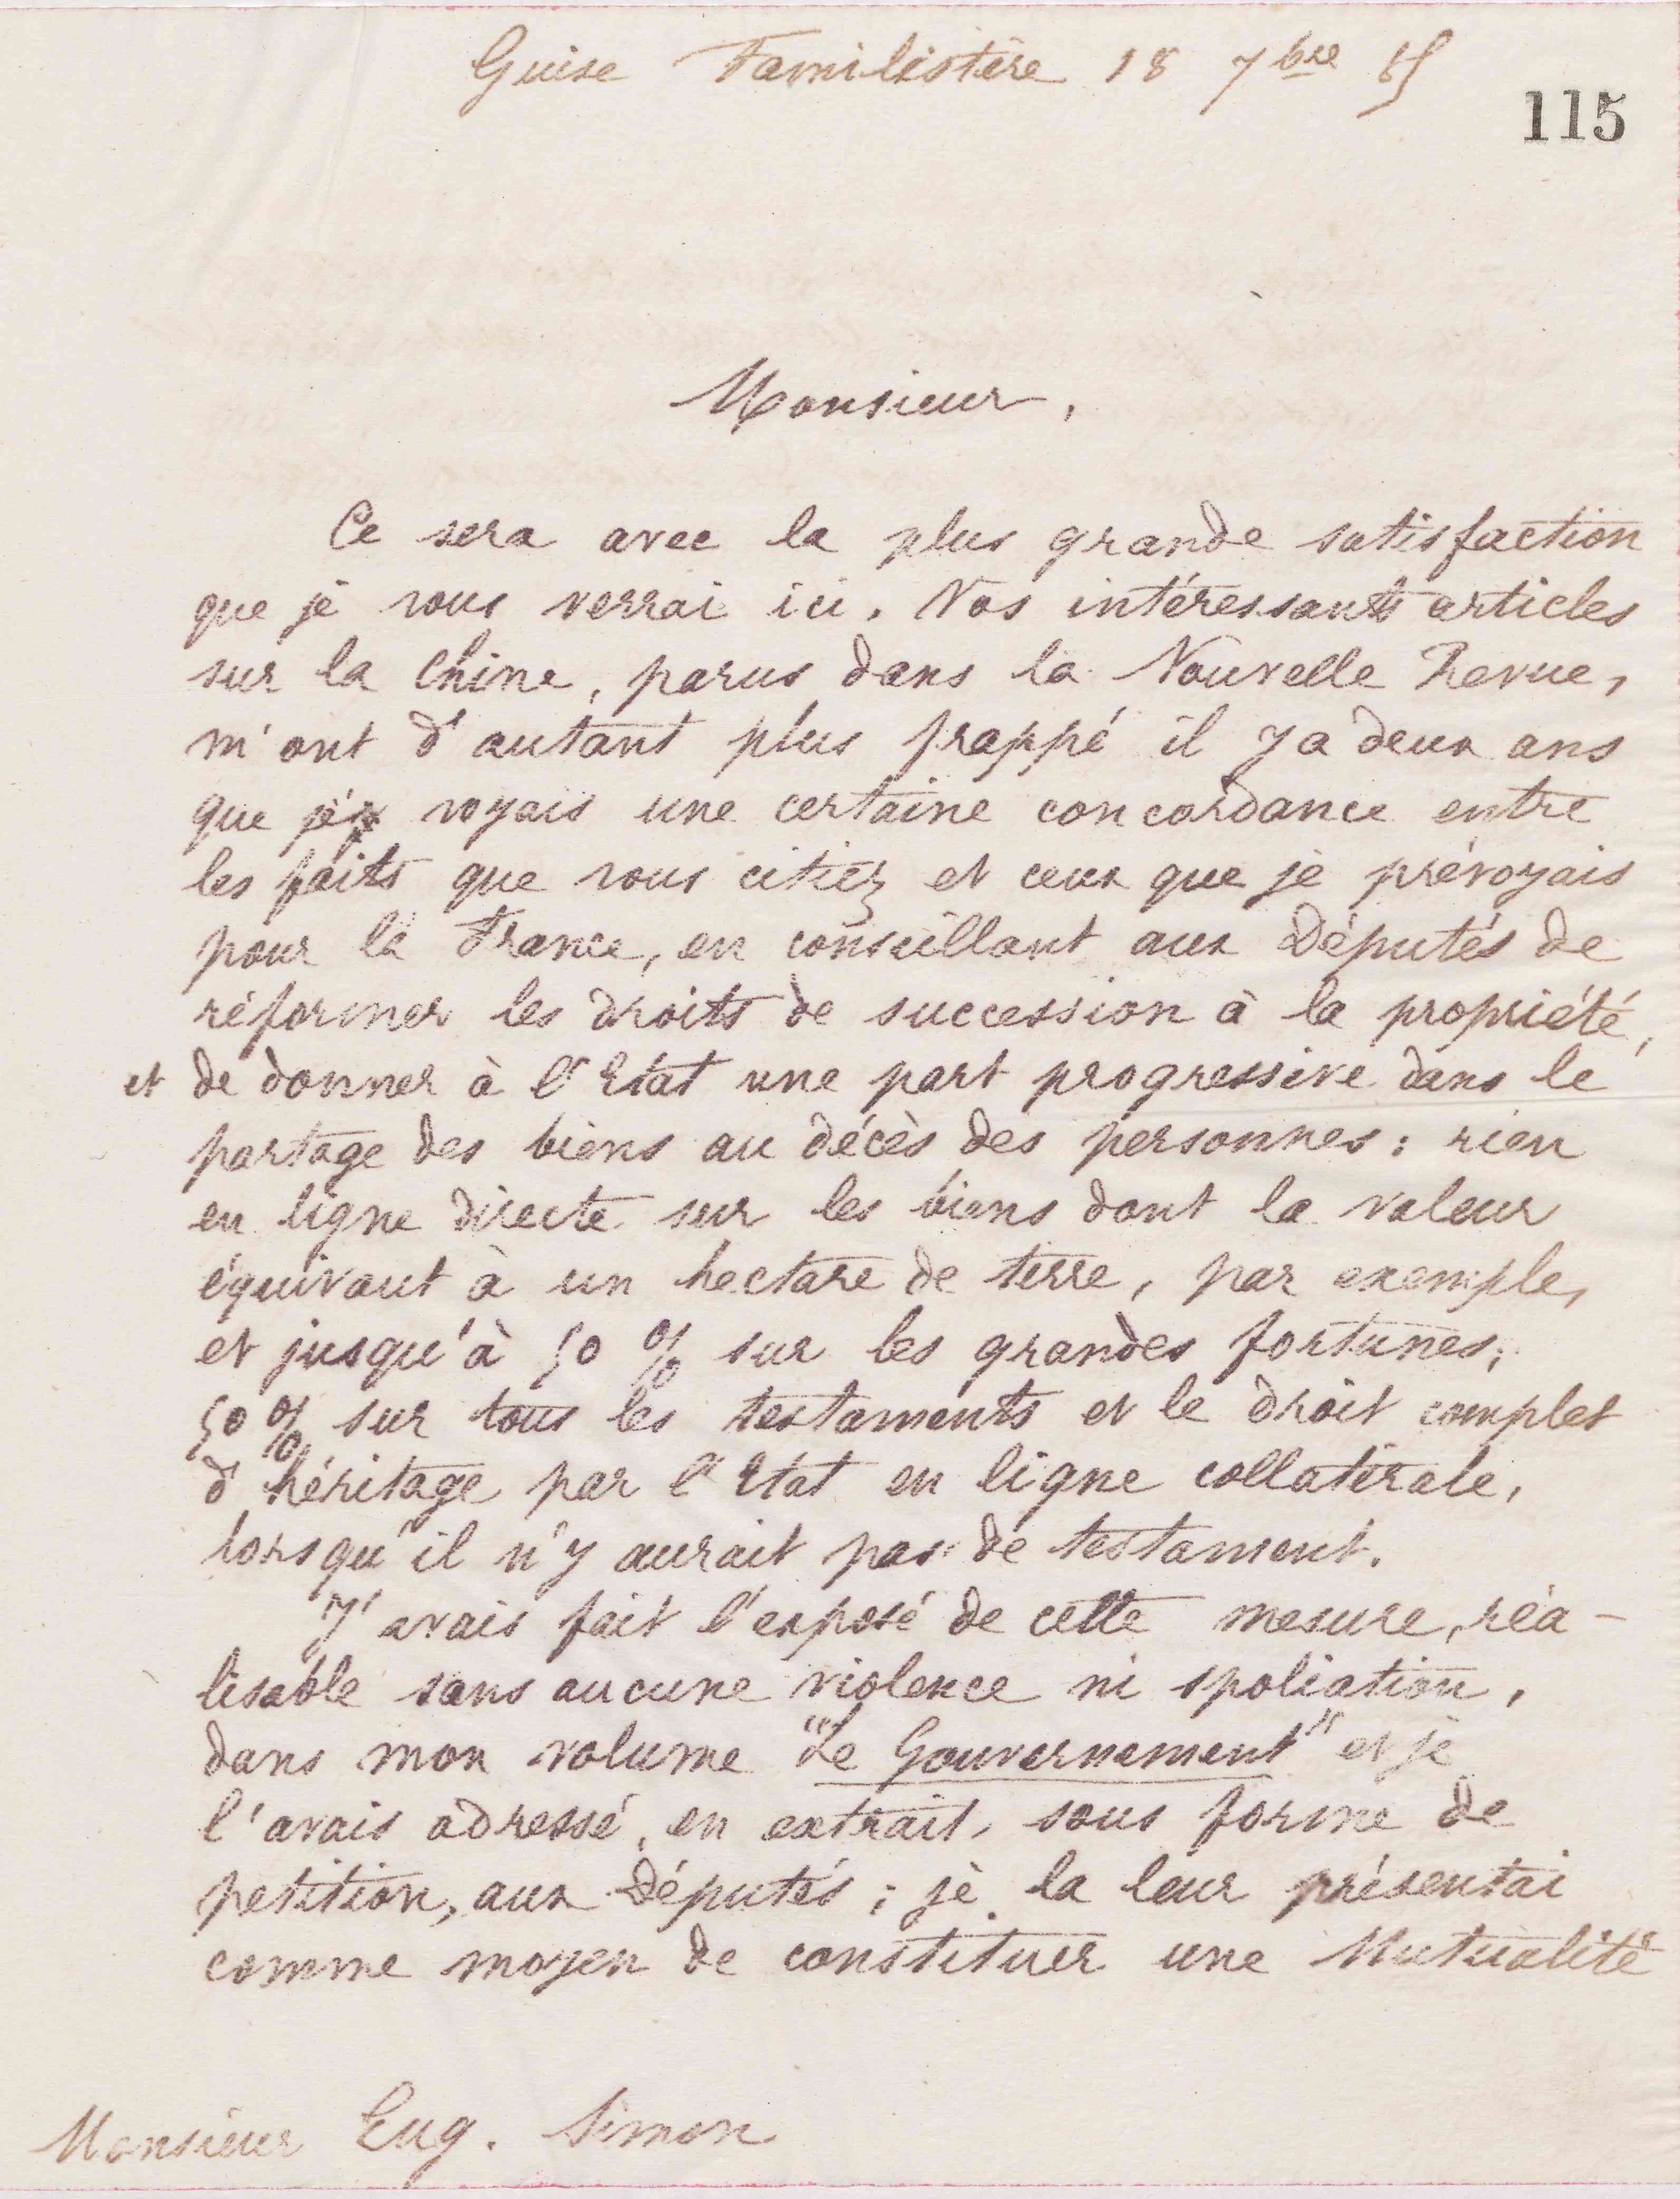 Guise Familistère 18 7bre 85
115
Monsieur,
Ce sera avec la plus grande satisfaction
que je vous verrai ici. Vos intéressants articles
sur la Chine, parus dans la Nouvelle Revue,
m'ont d'autant plus frappé il y a deux ans
que j'y voyais une certaine concordance entre
les faits que vous citiez et ceux que je prévoyais
pour la France, en conseillant aux Députés de
réformer les droits de succession à la propriété,
et de donner à l'Etat une part progressive dans le
partage des biens au décès des personnes : rien
en ligne directe sur les biens dont la valeur
équivaut à un hectare de terre, par exemple,
et jusqu'à 50 % sur les grandes fortunes;
50 % sur tous les testaments et le droit complet
d'héritage par l'Etat en ligne collatérale,
lorsqu'il n'y aurait pas de testament.
J'avais fait l'exposé de cette mesure, réa-
lisable sans aucune violence ni spoliation,
dans mon volume "Le Gouvernement" et je
l'avais adressé, en extrait, sous forme de
petition, aux Députés ; je la leur présentai
comme moyen de constituer une Mutualité
Monsieur Eug. Simon